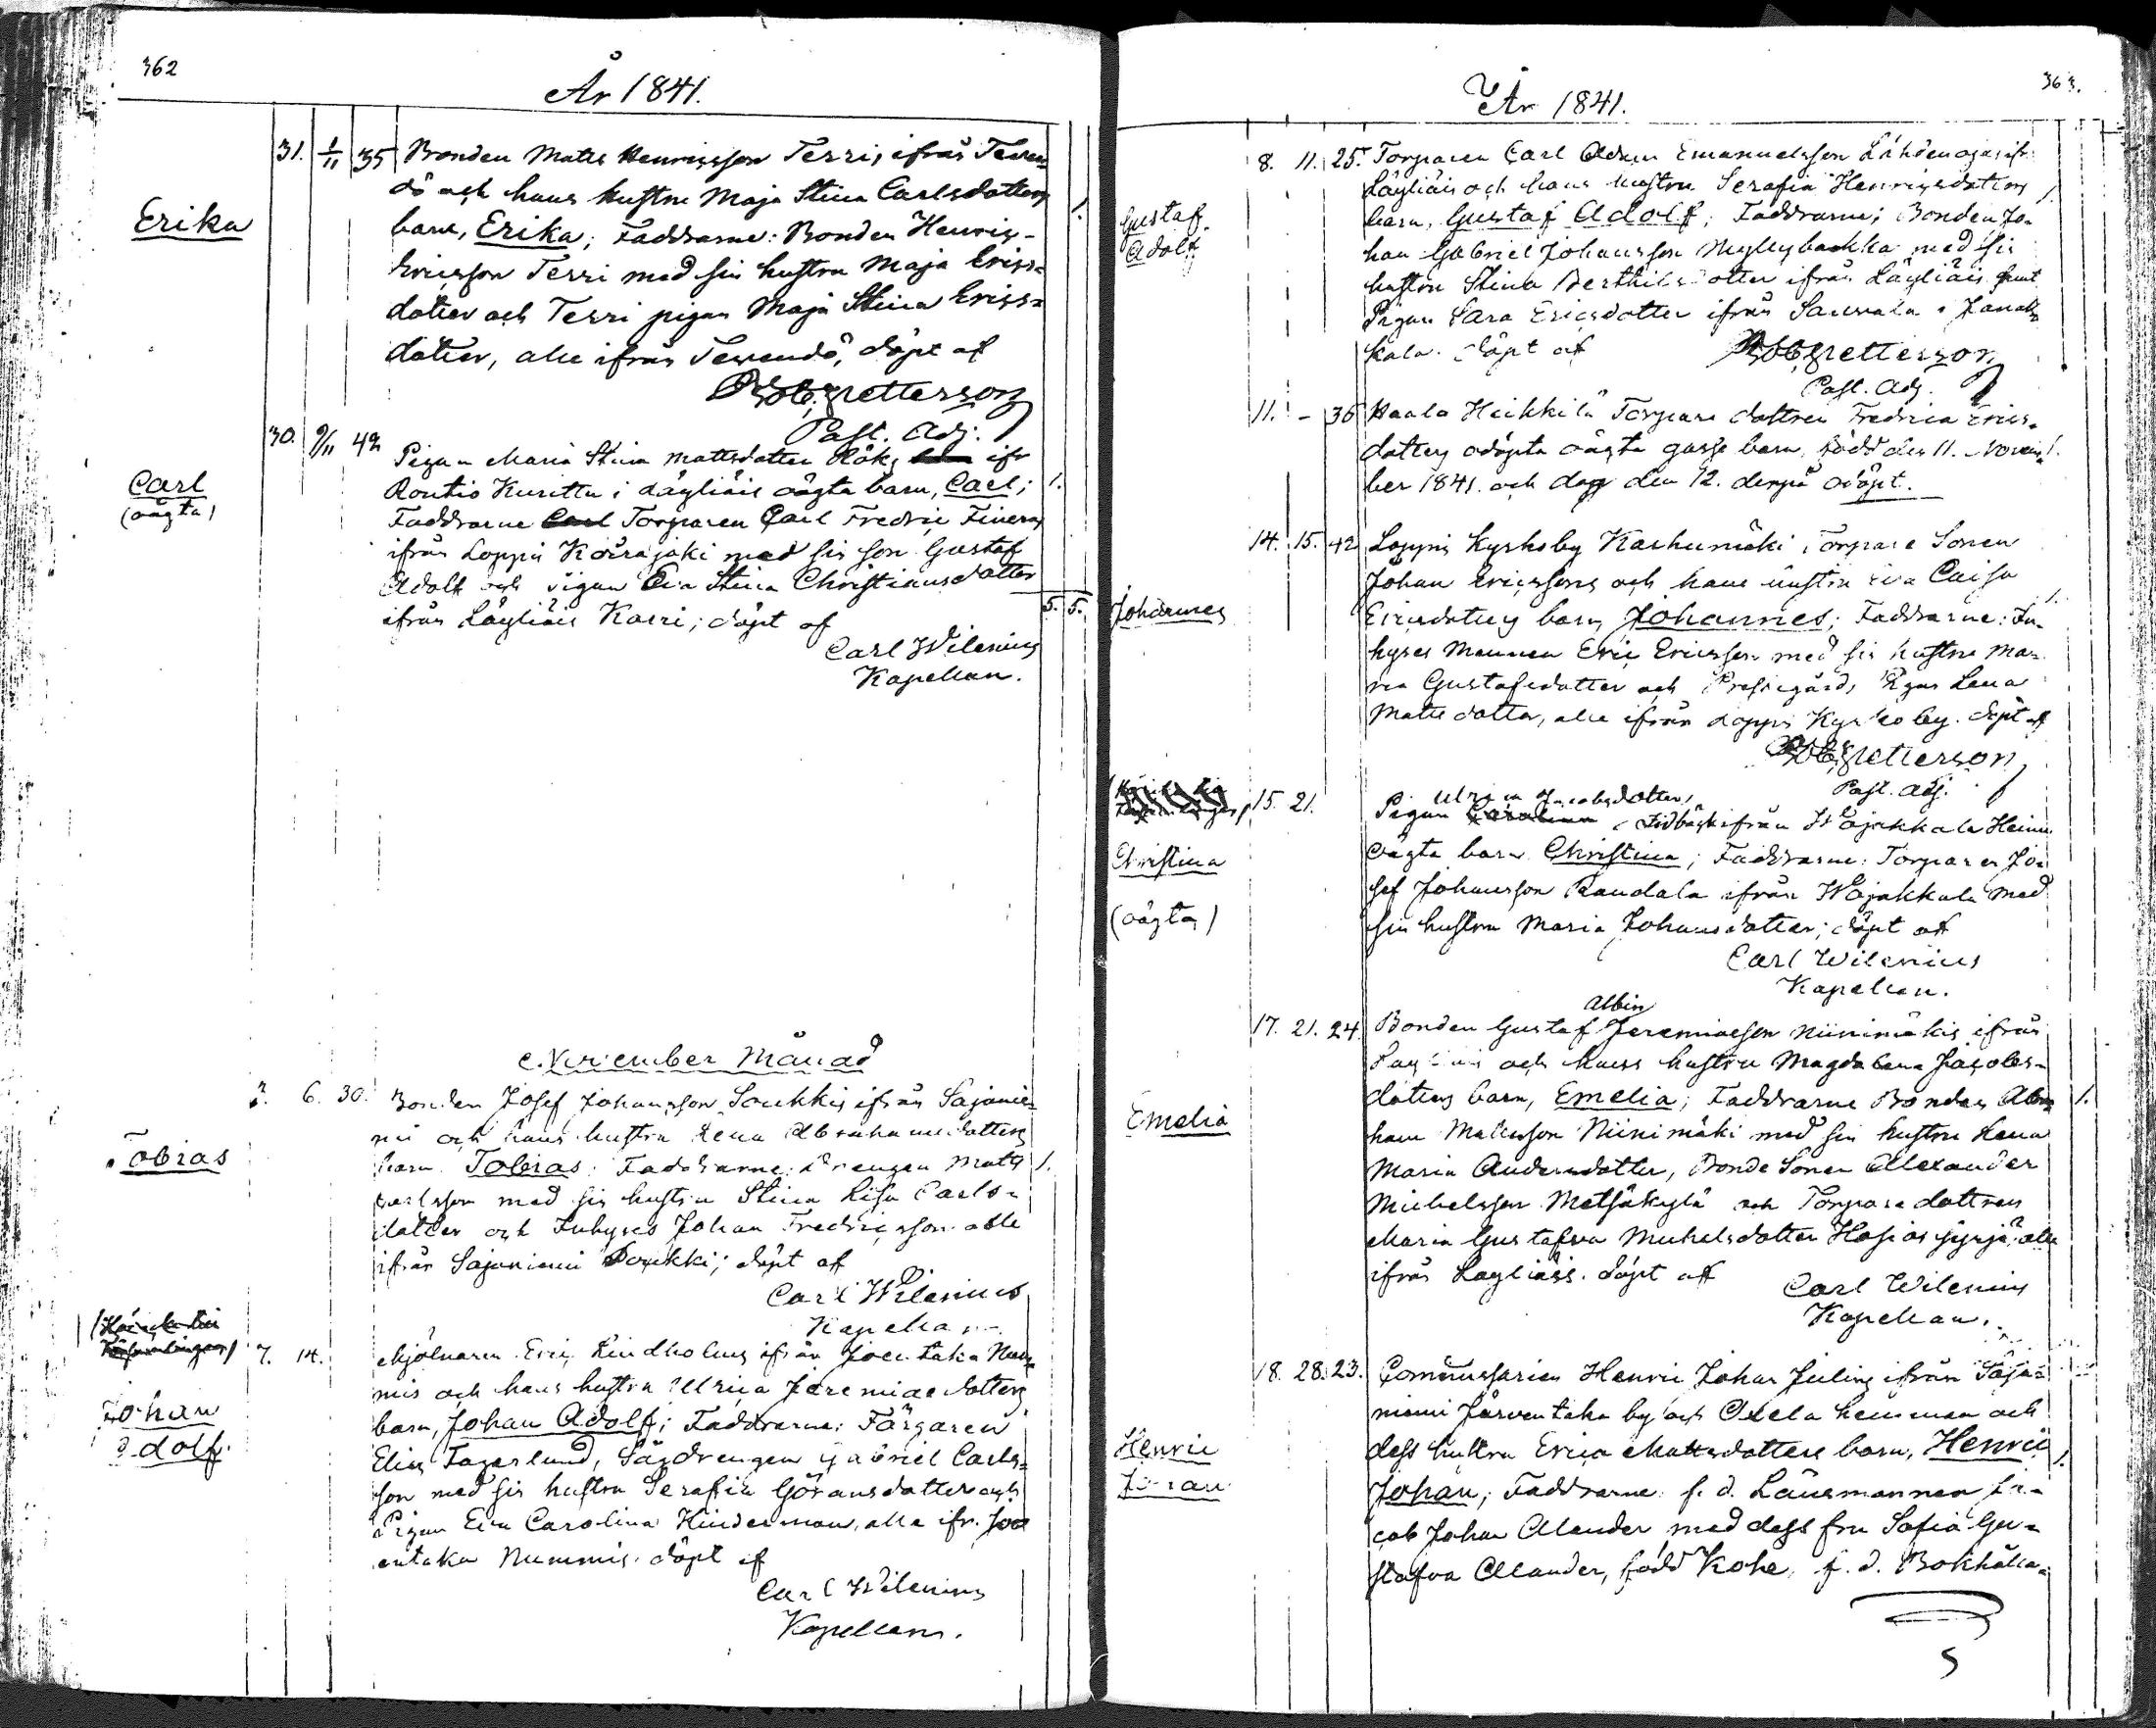 362
År 1841.
Erika
31. 1/11 35 Bonden Matts Henricsson Terri, ifrån Terren-
dö och hans hustru Maja Stina Carlsdotters
barn, Erika; Faddrarne: Bonden Henric
Ericsson Terri med sin hustru Maja Erics=
dotter och Terri pigan Maja Stina Erics=
dotter, alle ifrån Terrendö, döpt af
Petterson
Past. Adj.
Carl
(oägta)
30. 9/11 42 Pigan Maria Stina Mattsdotter Röks ifr
Rontio Kurittu i Läyliäis oägta barn, Carl; 1.
Faddrarne Torparen Carl Fredric Finers
ifrån Loppis med sin son Gustaf
Adolf och pigan Eva Stina Christiansdotter
ifrån Läyliäis Karri; döpt af
5. 5.
Carl Wilenius
Kapellan.
November Månad
Tobias
3. 6. 30. Bonden Josef Johansson Soukkis ifrån Sajanie=
mi och hans hustru Lena Abrahamsdotters
barn Tobias: Faddrarne: Drengen Matts 1.
Carlsson med sin hustru Stina Lisa Carls=
dotter och Inhyses Johan Fredricsson alle
ifrån Sajaniemi Soukki; döpt af
Carl Wilenius
Kapellan.
Johan
Adolf.
7. 14. Mjölnaren Eric Lindholms ifrån Joentaka Num=
mis och hans hustru Ulrica Jeremiaedotters
barn, Johan Adolf; Faddrarne: Färgaren
Elias Fagerlund, Sågdrengen Gabriel Carls=
son med sin hustru Serafia Göransdotter och
Pigan Eva Carolina Hinderman, alla ifr. Jo
entaka Nummis. döpt af
Carl Wilenius
Kapellan.
363.
År 1841.
Gustaf
Adolf
8. 11. 25. Torparen Carl Adam Emanuelsson Lähdenojas ifr.
Läyliäis och hans hustru Serafia Henricsdotters 1.
barn, Gustaf Adolf; Faddrarne; Bonden Jo=
han Gabriel Johansson Myllybackka med sin
hustru Stina Berthilsdotter ifrån Läyliäis samt
Pigan Sara Ericsdotter ifrån i Janak=
kala. Döpt af
Petterson
Past. Adj.
11. - 36 Haala Heikkilä Torpare dottren Fredrica Erics=
dotters odöpta oägta gosse barn, född den 11. Novem= 1.
ber 1841. och dog den 12. derpå odöpt.
Johannes
14. 15. 42 Loppis Kyrkoby Karhumäki Torpare Sonen
Johan Ericssons och hans hustru Eva Caisa
Ericsdotters barn, Johannes; Faddrarne: In=
hyses Mannen Eric Ericsson med sin hustru Ma=
ria Gustafsdotter och Prestegårds Pigan Lena
Mattsdotter, alle ifrån Loppis Kyrkoby. döpt af
Petterson
Past. Adj.
Christina
(oägta)
15. 21. Ulrica Jacobsdotter
Pigan Lidbäck ifrån Wojakkala Heinu
oägta barn Christina; Faddrarne: Torparen Jo=
sef Johansson Raudala ifrån Wojakkala med
sin hustru Maria Johansdotter; döpt af
Carl Wilenius
Kapellan.
Emelia
Albin
17. 21. 24. Bonden Gustaf Jeremiaeson Niinimäkis ifrån
Läyliäis och hans hustru Magdalena Jacobs=
dotters barn, Emelia; Faddrarne Bonden Abra= 1.
ham Mattsson Niinimäki med sin hustru Lena
Maria Andersdotter, Bonde Sonen Alexander
Michelsson Metsäkylä och Torpare dottren
Maria Gustafva Michelsdotter alle
ifrån Läyliäis. döpt af
Carl Wilenius
Kapellan.
Henric
Johan
18. 28. 23. Commissarien Henric Johan Julins ifrån Saja=
niemi Järventaka by och Oxela hemman och
dess hustru Erica Mattsdotters barn, Henric 1.
Johan; Faddrarne: f. d. Länsmannen Ja=
cob Johan Alander med dess fru Sofia Gu=
stafva Alander, född Kohe, f. d. Bokhålla=